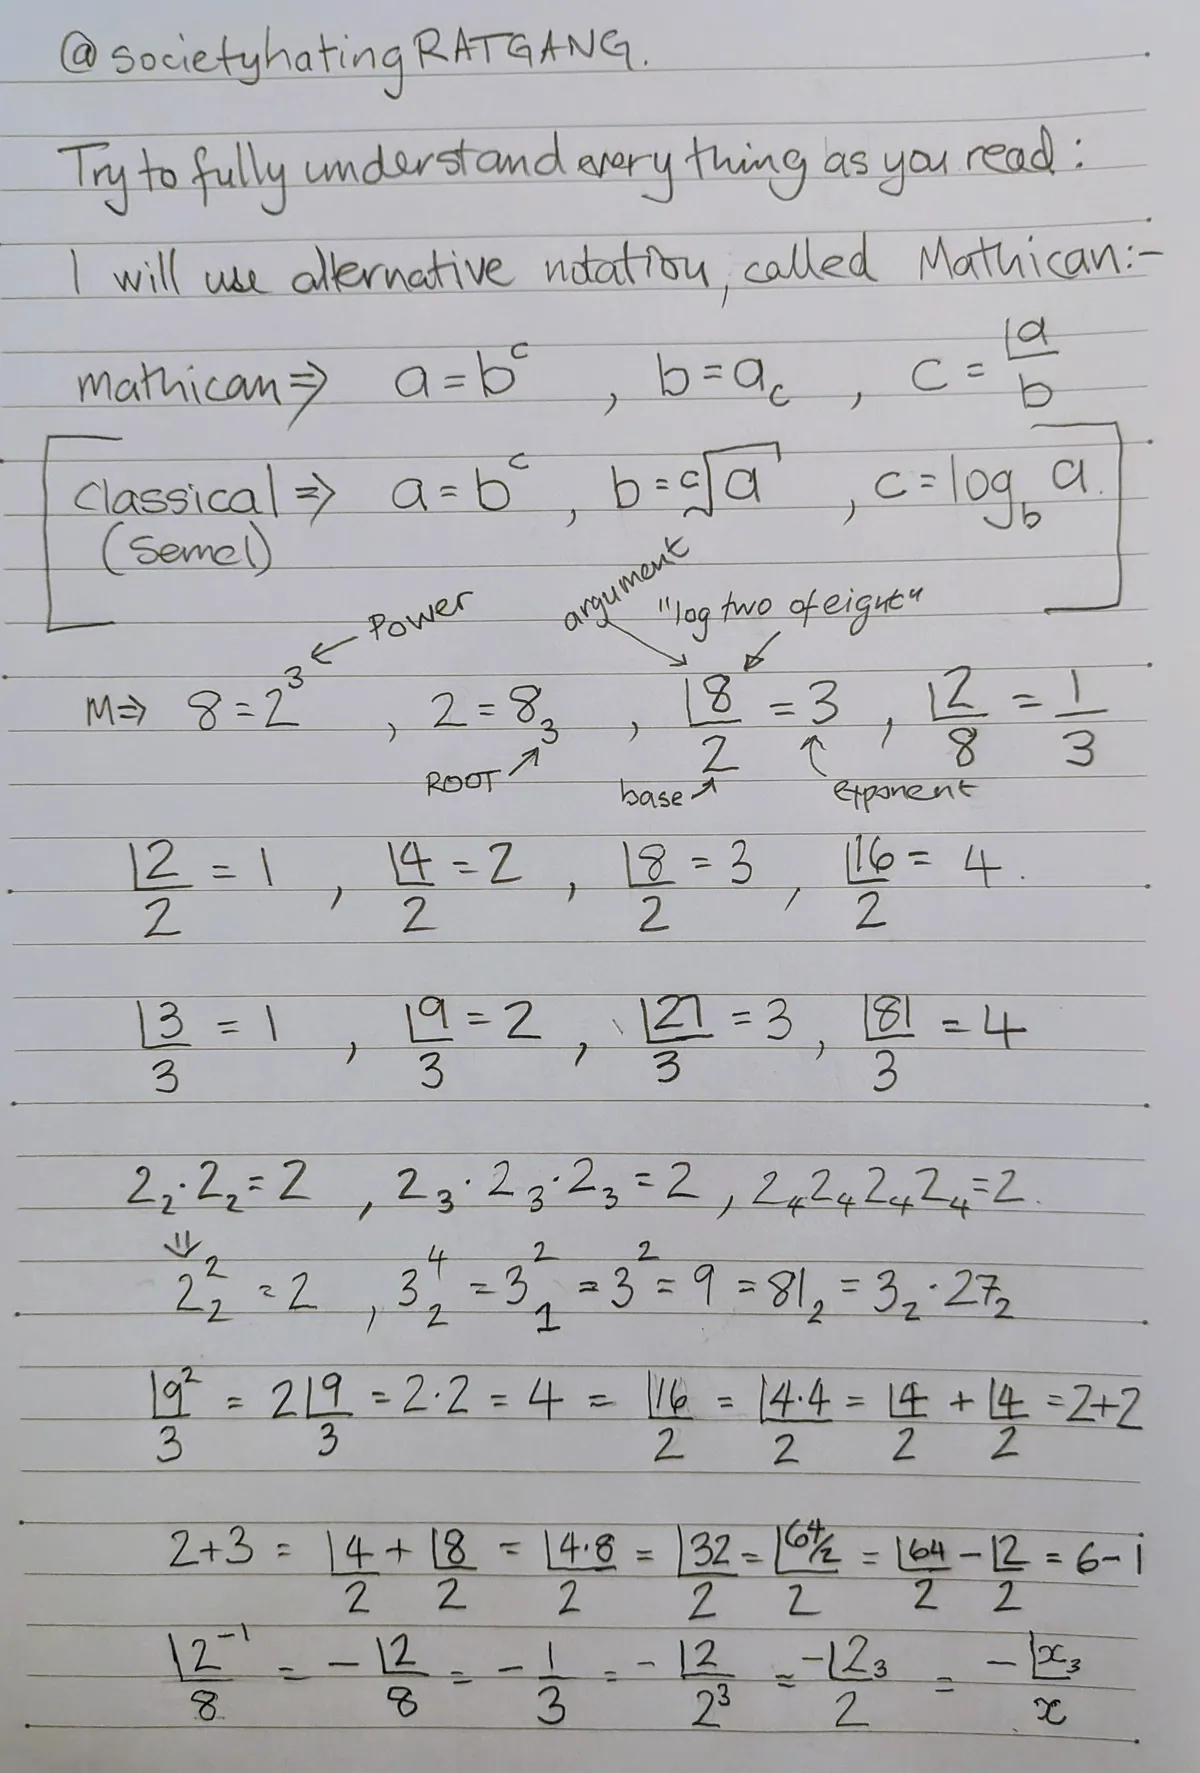 @societyhatingRATGANG.
Try to fully understand every thing as you read:
I will use alternative notation, called Mathican:-
mathican ⇒ a = b^c , b = a_c , c = |a/b
Classical ⇒ a = b^c , b = ᶜ√a , c = log_b a.
(Semel)
← Power argument "log two of eight"
M ⇒ 8 = 2^3 , 2 = 8_3 , |8/2 = 3 , |2/8 = 1/3
ROOT ↗ base ↗ ↑ exponent
|2/2 = 1 , |4/2 = 2 , |8/2 = 3 , |16/2 = 4.
|3/3 = 1 , |9/3 = 2 , |27/3 = 3 , |81/3 = 4
2_2·2_2 = 2 , 2_3·2_3·2_3 = 2 , 2_4 2_4 2_4 2_4 = 2.
⇓
2_2^2 = 2 , 3_2^4 = 3_1^2 = 3^2 = 9 = 81_2 = 3_2·27_2
|9^2/3 = 2|9/3 = 2·2 = 4 = |16/2 = |4·4/2 = |4/2 + |4/2 = 2+2
2+3 = |4/2 + |8/2 = |4·8/2 = |32/2 = |64/2/2 = |64/2 - |2/2 = 6-1
|2^-1/8 = -|2/8 = -1/3 = -|2/2^3 = -|2_3/2 = -|x_3/x